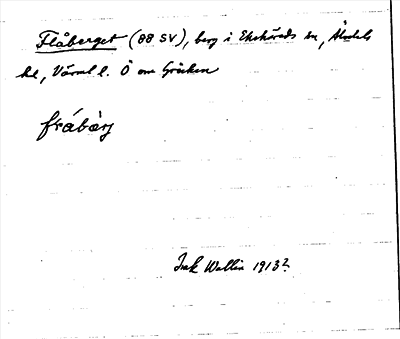 Flåberget (88 SV), berg i Ekshärads sn, Älvdals
hd, Värml l. Ö om Gräcken
fråbärj
Ink Wallin 1913?